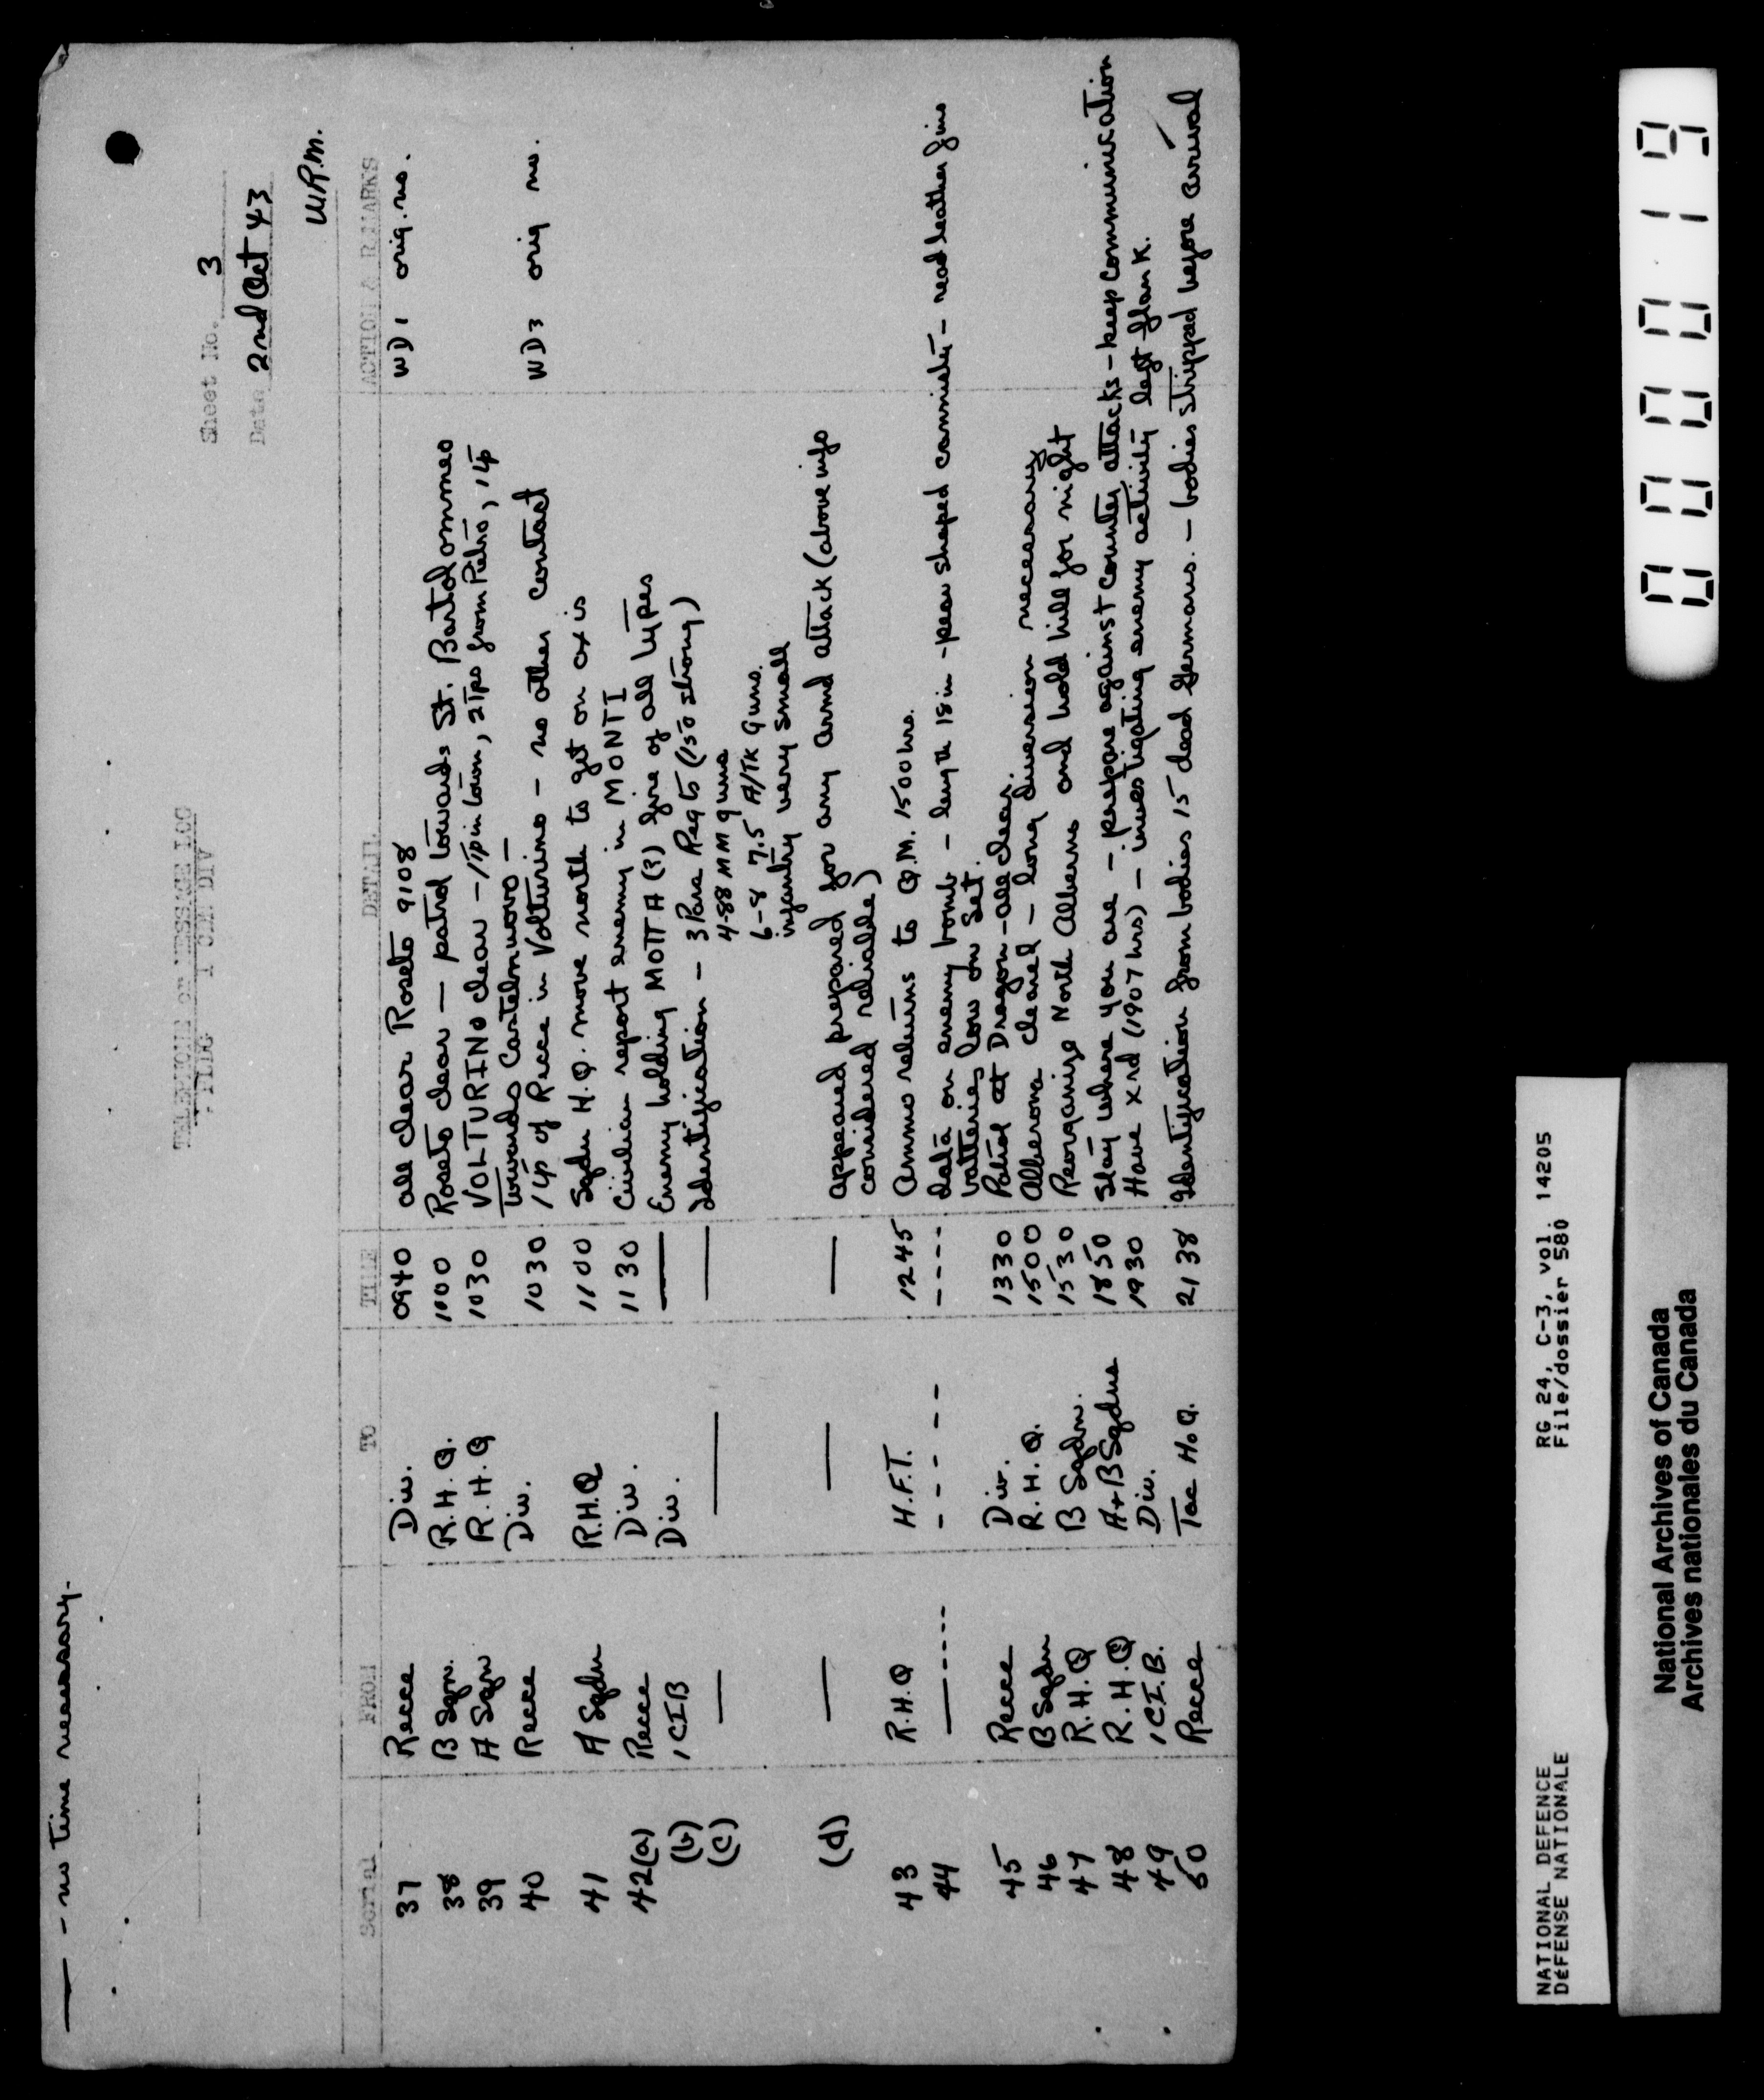 — - no time necessary.
TELEPHONE or MESSAGE LOG
1 CDN DIV
Sheet No. 3
Date 2nd Oct 43
W.R.M.
Serial FROM TO TIME DETAIL ACTION & REMARKS
37 Recce Div. 0940 all clear Roseto 9108 WD1 orig. no.
38 B Sqn. R.H.Q. 1000 Roseto clear — patrol towards St. Bartolommeo
39 A Sqn R.H.Q 1030 VOLTURINO clear - 1 Tp in town, 2 Tps from Pietro, 1 tp
towards Castelnuovo —
40 Recce Div. 1030 1 tp of Recce in Volturino - no other contact WD3 orig no.
41 A Sqdn R.H.Q 1100 Sqdn H.Q. move north to get on axis
42(a) Recce Div. 1130 Civilian report enemy in MONTI
(b) 1 CIB Div. — Enemy holding MOTTA (3) fire of all types
(c) — — — Identification - 3 Para Regts (150 strong)
4-88 MM guns
6-8 7.5 A/TK Guns.
infantry very small
(d) — — — appeared prepared for any armd attack (above info
considered reliable)
43 R.H.Q H.F.T. 1245 Ammo returns to Q.M. 1500 hrs.
44 —---- - - - - -- ---- data on enemy bomb - length 18 in - pear shaped cannister - read leather fins
batteries low on set.
45 Recce Div. 1330 Patrol at Dragon - all clear.
46 B Sqdn R.H.Q. 1500 Alberona cleared - long diversion necessary
47 R.H.Q B Sqdn. 1530 Reorganize North Alberona and hold hill for night
48 R.H.Q A+B Sqdns 1850 Stay where you are - prepare against counter attacks - keep communication
49 1 C.I.B. Div. 1930 Have x rd (1907 hrs) - investigating enemy activity left flank.
50 Recce Tac H.Q. 2138 Identification from bodies 15 dead Germans. - bodies stripped before arrival
000019
NATIONAL DEFENCE RG 24, C-3, vol. 14205
DÉFENSE NATIONALE File/dossier 580
National Archives of Canada
Archives nationales du Canada